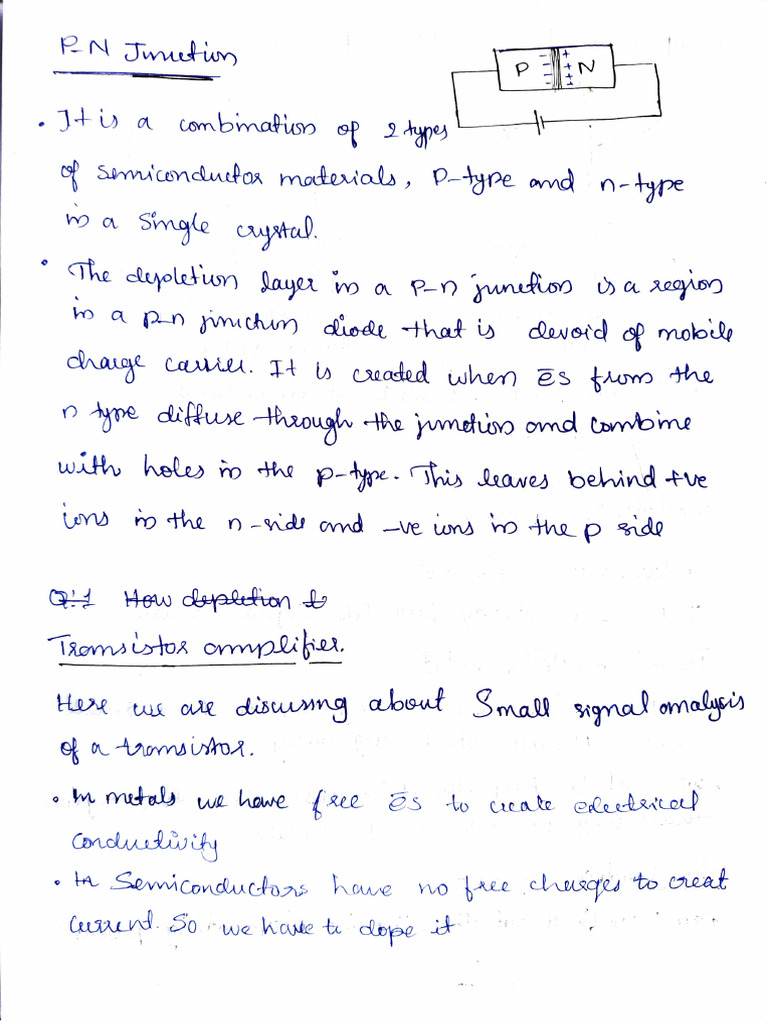 P-N Junction
P - - - - + + + + N
• It is a combination of 2 types
of semiconductor materials, P-type and n-type
in a single crystal.
• The depletion layer in a p-n junction is a region
in a p-n jinictun diode that is devoid of mobile
charge carrier. It is created when ēs from the
n type diffuse through the junction and combine
with holes in the p-type. This leaves behind +ve
ions in the n-side and -ve ions in the p side
Q:1 How depletion t
Transistor amplifier.
Here we are discussing about Small signal analysis
of a transistor.
• In metals we have free ēs to create electrical
conductivity
• In Semiconductors have no free charges to creat
current. So we have to dope it